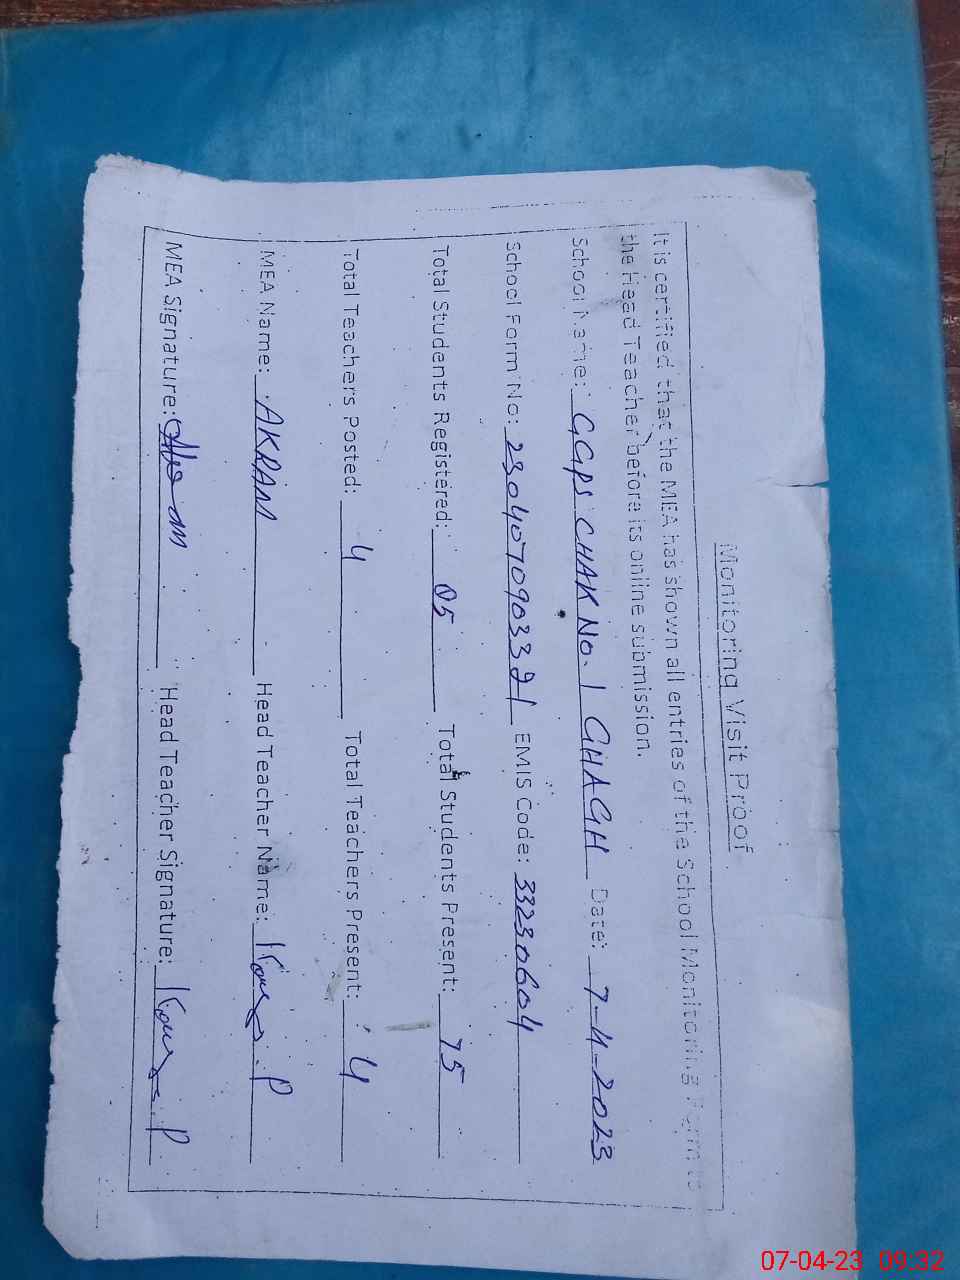 Monitoring Visit Proof
It is certified that the MEA has shown all entries of the School Monitoring Form to
the Head Teacher before its online submission.
School Name: GGPS CHAK No. 1 GHAGH Date: 7-4-2023
School Form No: 2304070903321 EMIS Code: 33230604
Total Students Registered: 85 Total Students Present: 75
Total Teachers Posted: 4 Total Teachers Present: 4
MEA Name: AKRAM Head Teacher Name: P
MEA Signature: Head Teacher Signature: P
07-04-23 09:32